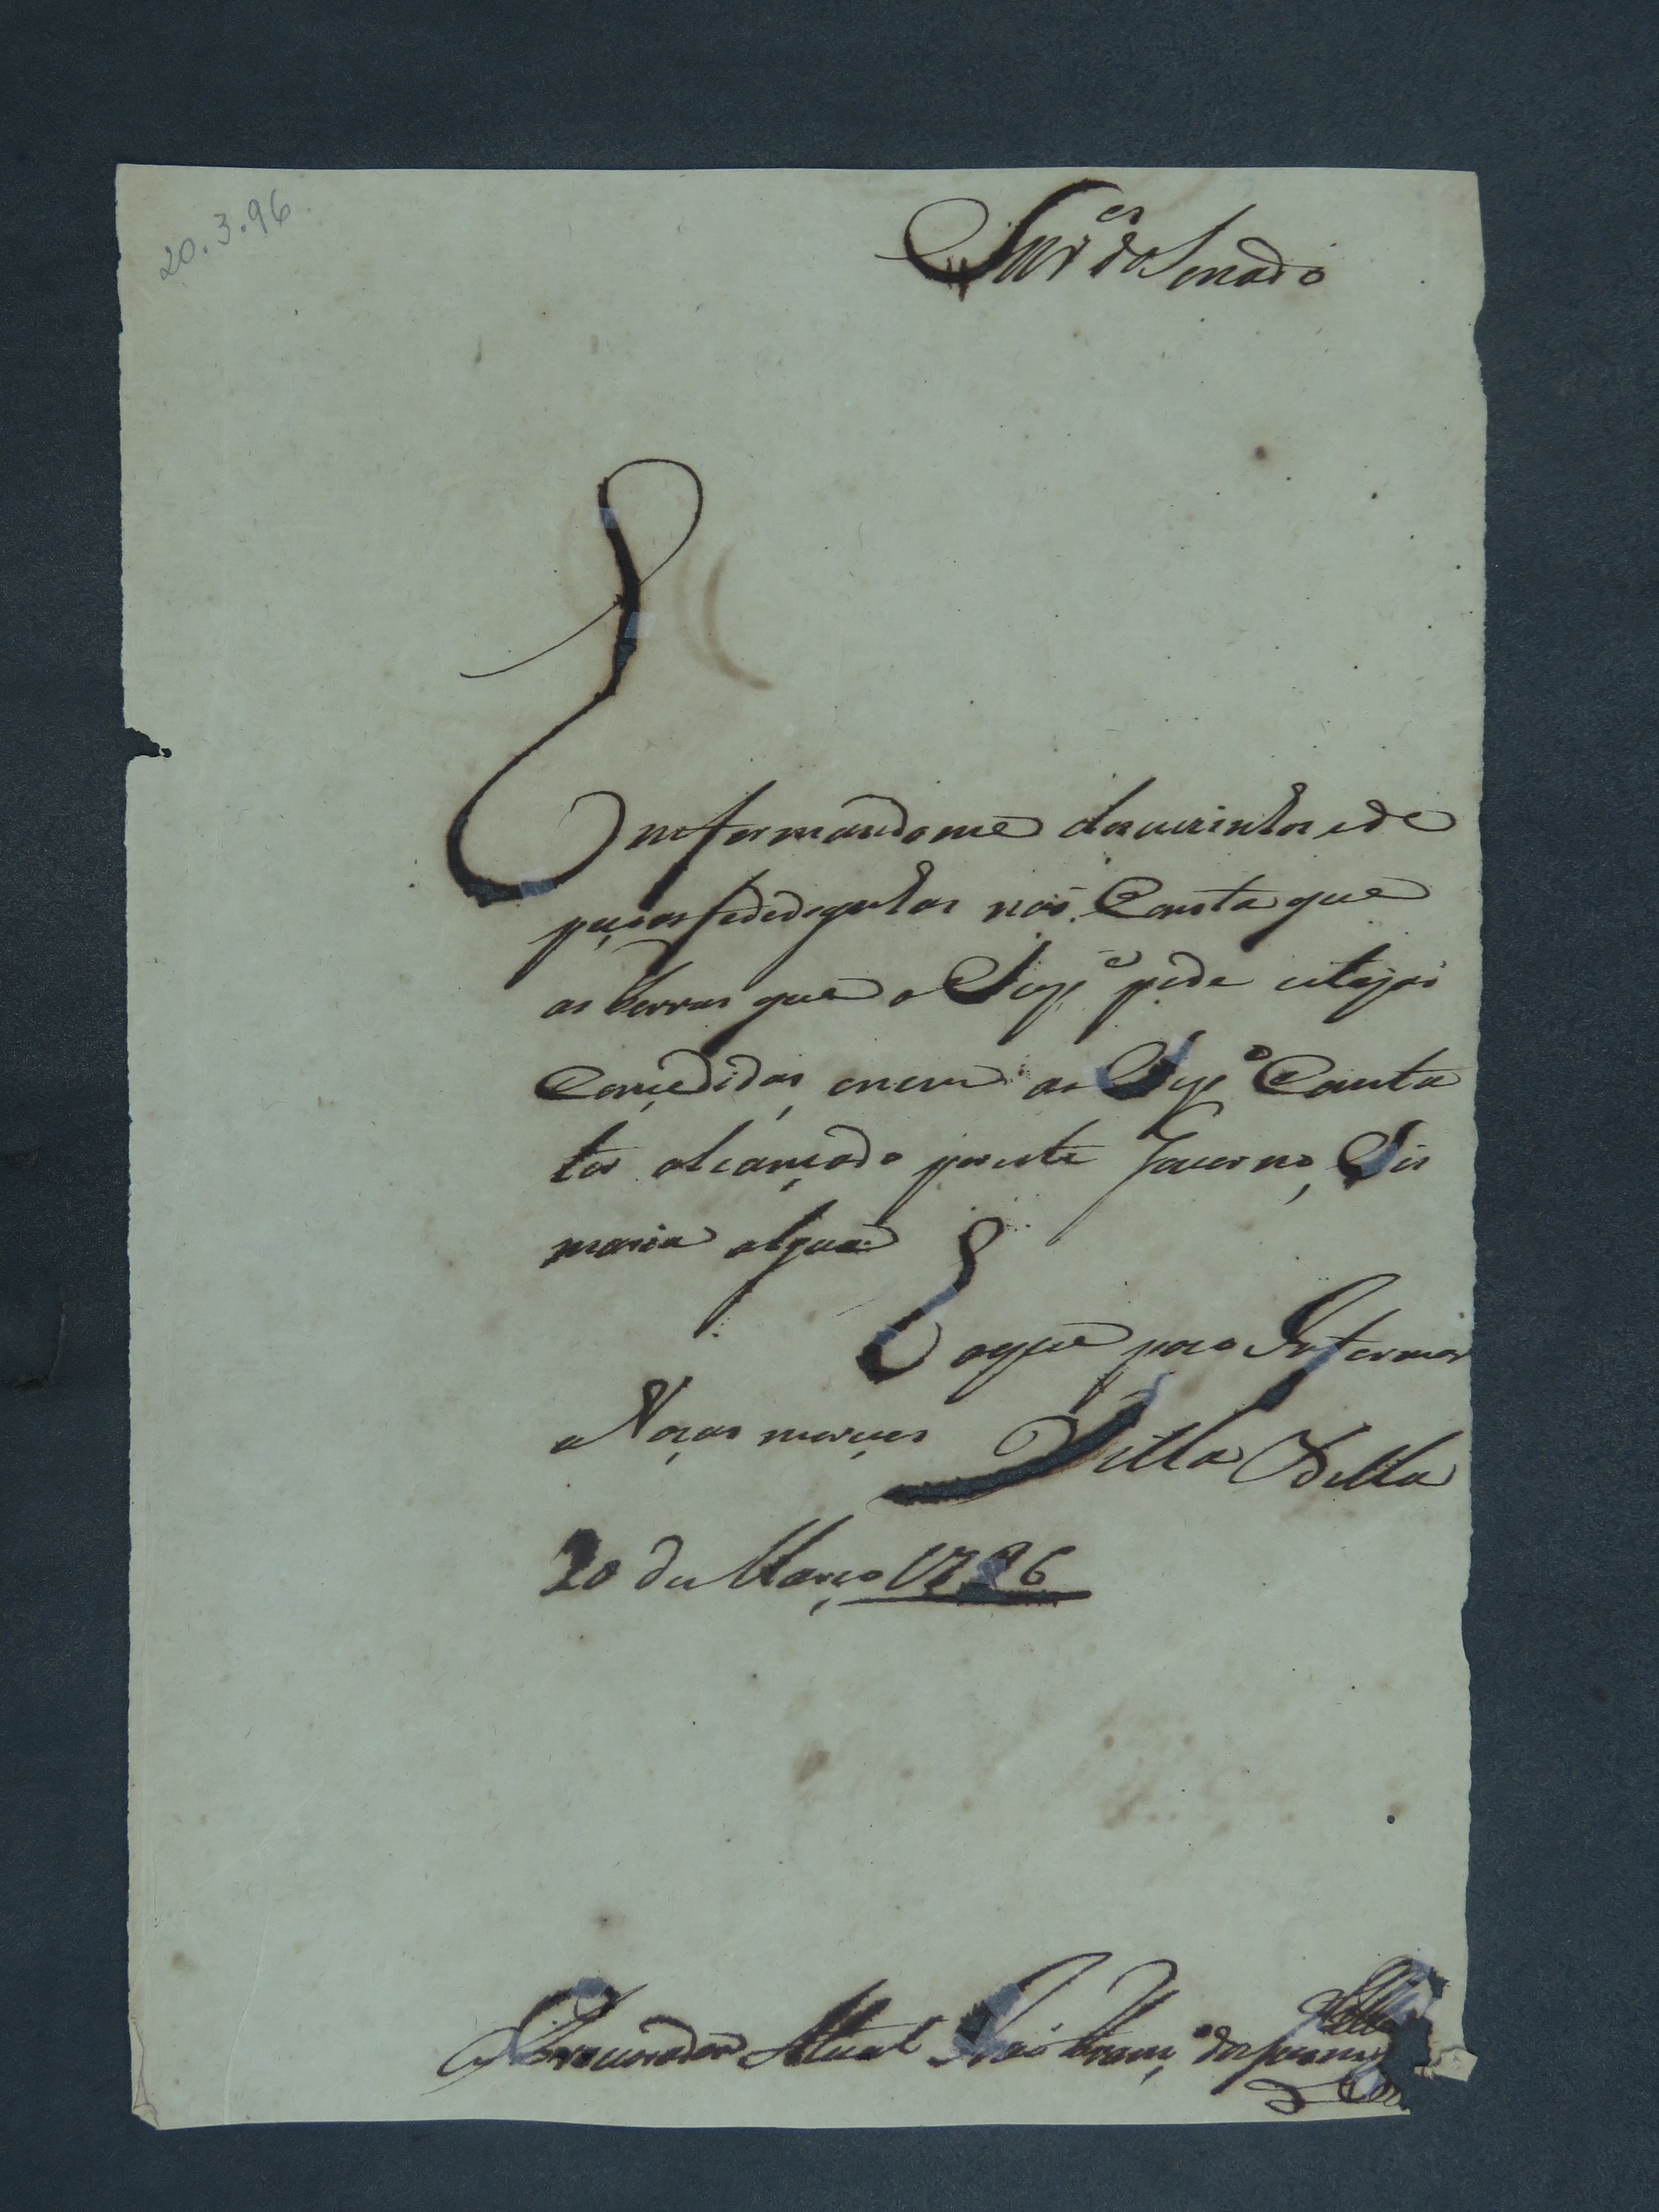 20.3.96
Snr.es do Senado
Informandome dos vezinhos e de
peçoas fidedignas não Consta que
as terras que o Sup.e pede estejão
Concedidas, e nem ao Sup.e Consta
ter alcançado por este Governo, Sis
maria algua
He o que poso Informar
a Voças merces Villa Bella
20 de Março 1796
O Procurador Atual João Franc.o